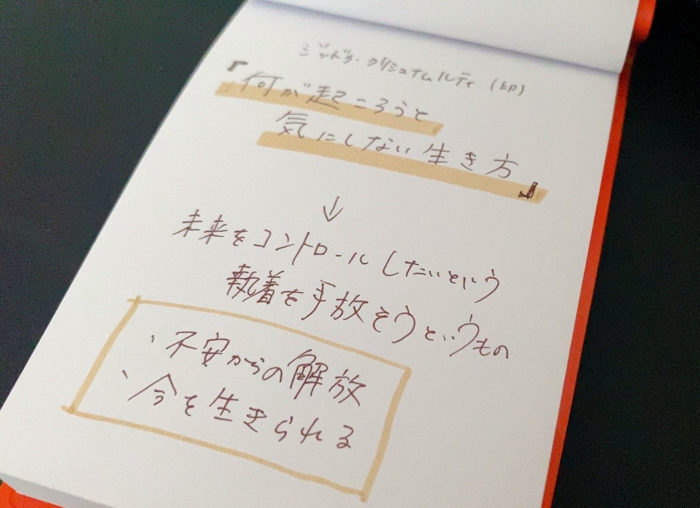 ジッドゥ・クリシュナムルティ(印)
『何が起ころうと
気にしない生き方』
↓
未来をコントロールしたいという
執着を手放そうというもの
・不安からの解放
・今を生きられる